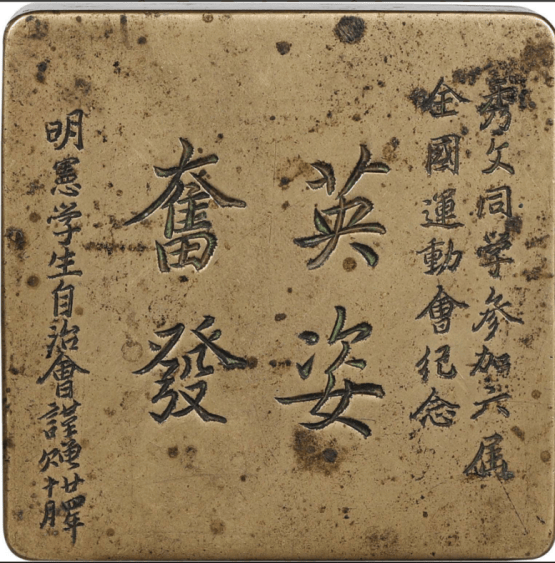 秀文同学参加六届
全國運動會纪念
英姿
奮發
明憲学生自治會謹贈 廿四年十月